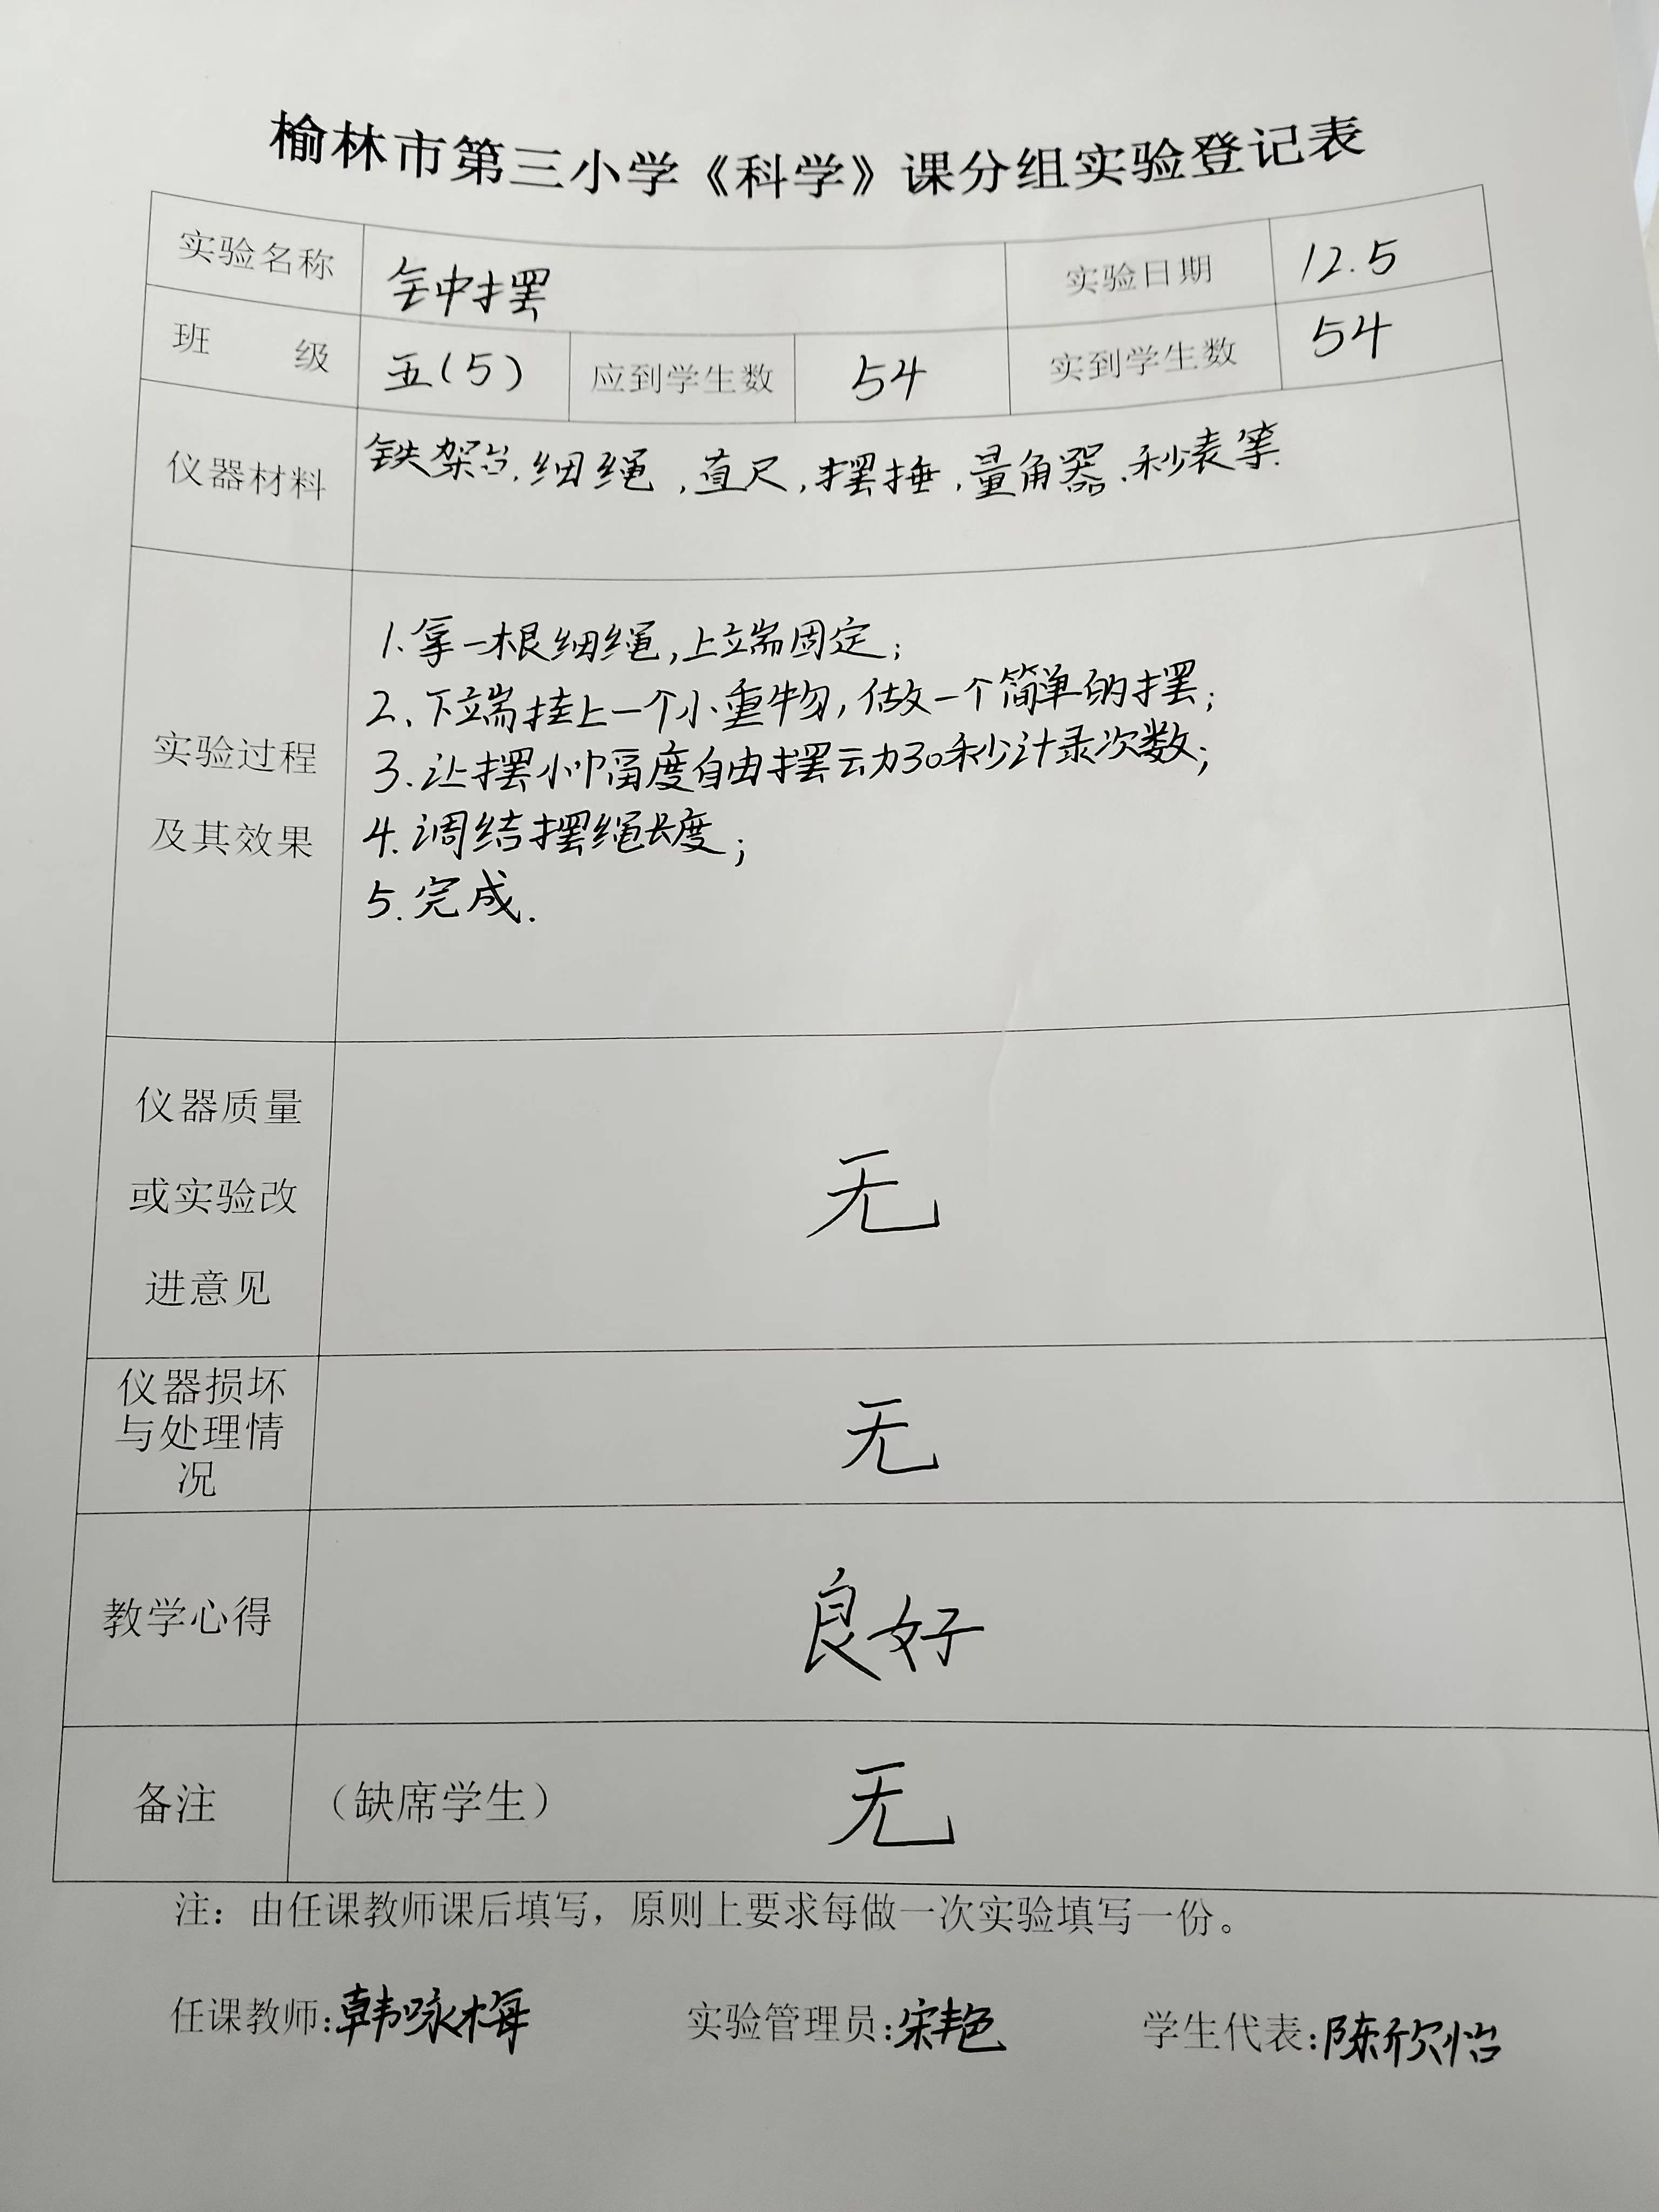 榆林市第三小学《科学》课分组实验登记表
实验名称 钟摆 实验日期 12.5
班 级 五(5) 应到学生数 54 实到学生数 54
仪器材料 铁架台,细绳,直尺,摆捶,量角器、秒表等.
1.拿一根细绳,上端固定;
2、下端挂上一个小重物,做一个简单的摆;
实验过程 3.让摆小巾畐度自由摆动30秒计录次数;
及其效果 4.调结摆绳长度;
5.完成.
仪器质量
或实验改 无
进意见
仪器损坏
与处理情 无
况
教学心得 良好
备注 （缺席学生） 无
注：由任课教师课后填写，原则上要求每做一次实验填写一份。
任课教师:韩咏梅 实验管理员:宋艳 学生代表:陈欣怡